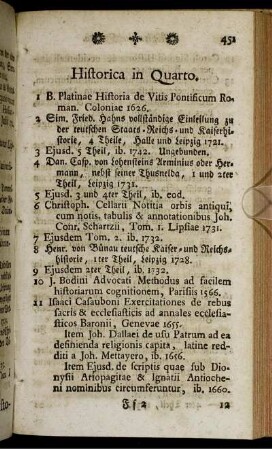 451
Historica in Quarto.
1 B. Platinae Historia de Vitis Pontificum Ro-
man. Coloniae 1626.
2 Sim. Fried. Hahns vollständige Einleitung zu
der teutschen Staats-Reichs- und Kaiserhi-
storie, 4 Theile, Halle und Leipzig 1721.
3 Ejusd. 5 Theil, ib. 1742. Ungebunden.
4 Dan. Casp. von Lohensteins Arminius oder Her-
mann, nebst seiner Thusnelda, 1 und 2ter
Theil, Leipzig 1731.
5 Ejusd. 3 und 4ter Theil, ib. eod.
6 Christoph. Cellarii Notitia orbis antiqui,
cum notis, tabulis & annotationibus Joh.
Conr. Schartzii, Tom. 1. Lipsiae 1731.
7 Ejusdem Tom. 2. ib. 1732.
8 Henr. von Bünau teutsche Kaiser- und Reichs-
historie, 1ter Theil, Leipzig 1728.
9 Ejusdem 2ter Theil, ib. 1732.
10 J. Bodini Advocati Methodus ad facilem
historiarum cognitionem, Parisiis 1566.
11 Isaaci Casauboni Exercitationes de rebus
sacris & ecclesiasticis ad annales ecclesia-
sticos Baronii, Genevae 1655.
Item Joh. Dallaei de usu Patrum ad ea
definienda religionis capita, latine red-
diti a Joh. Mettayero, ib. 1656.
Item Ejusd. de scriptis quae sub Dio-
nysii Areopagitae & Ignatii Antioche-
ni nominibus circumferuntur, ib. 1660.
F f 2 12